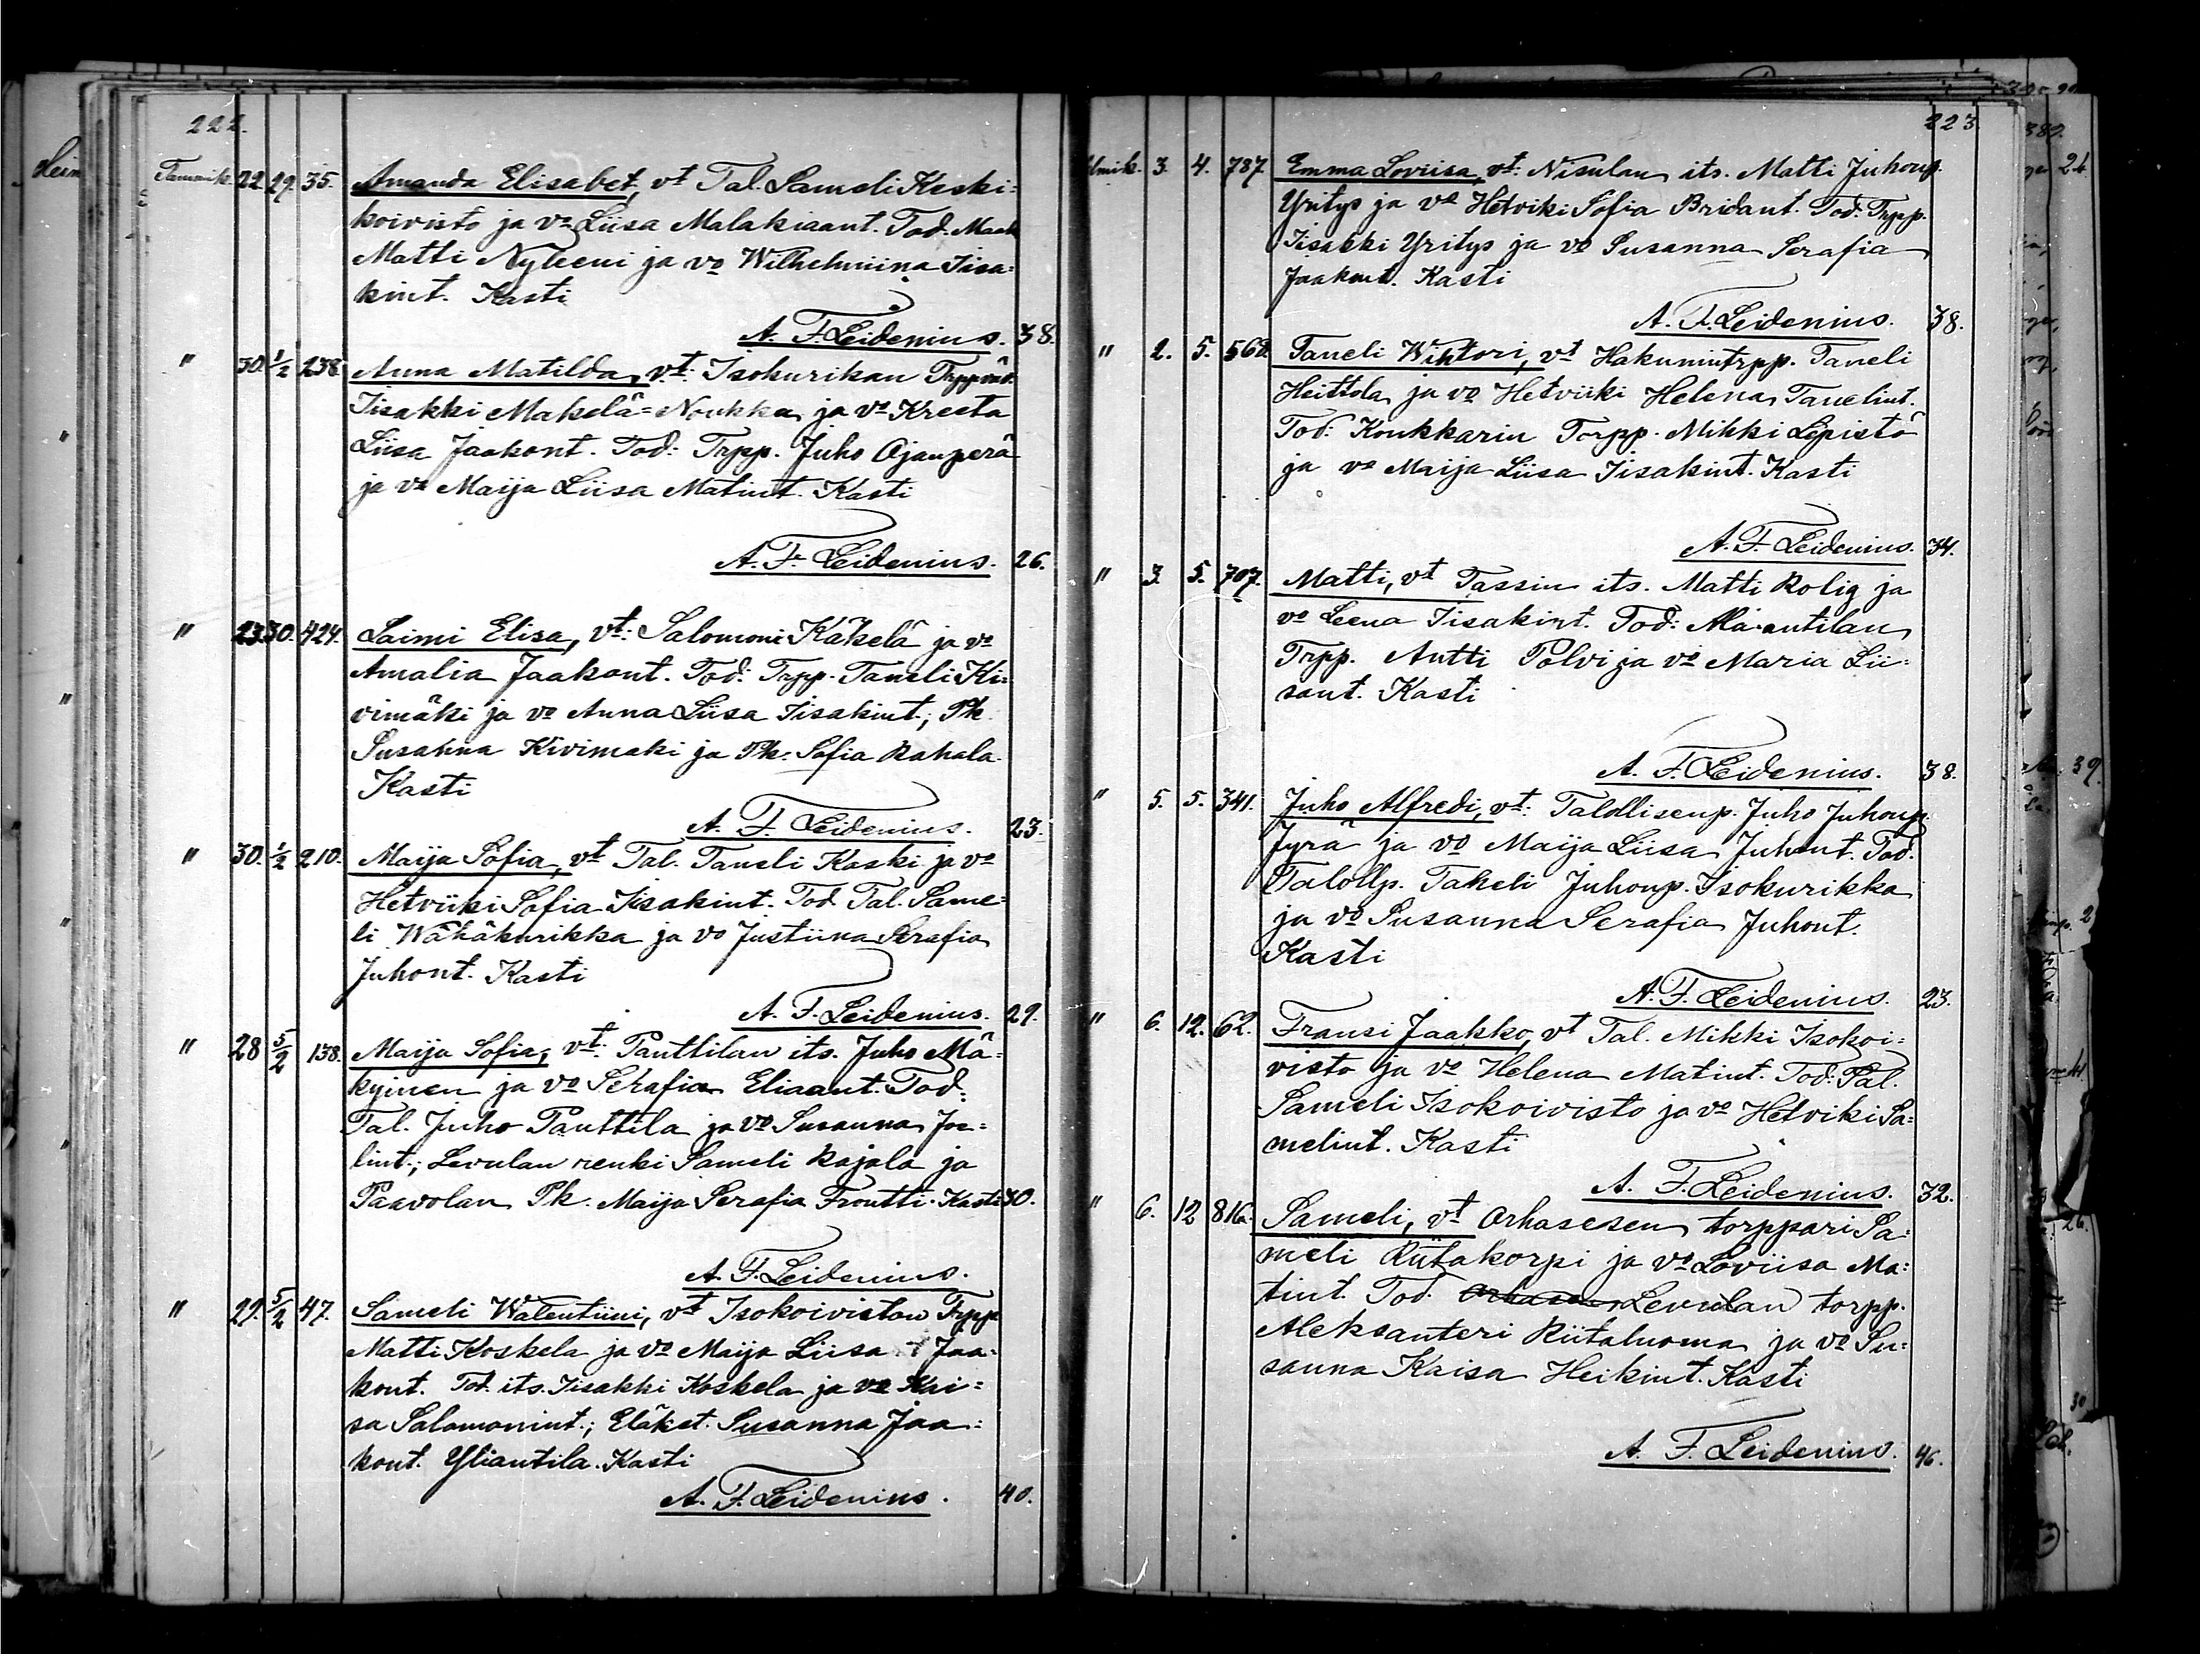 222.
Tammik. 22. 29. 35. Amanda Elisabet, vt Tal. Sameli Keski=
koivisto ja vo Liisa Malakiaant. Tod. Maak
Matti Nyleeni ja vo Wilhelmiina Iisa=
kint. Kasti
A. F. Leidenius. 38.
" 30. 1/2 238. Anna Matilda, vt. Isokurikan Trppvn.
Iisakki Makelä=Noukka ja vo Kreeta
Liisa Jaakont. Tod: Trpp. Juho Ojanperä
ja vo Maija Liisa Matint. Kasti
A. F. Leidenius. 26.
" 23. 30. 424. Laimi Elisa, vt: Salomoni Käkelä ja vo
Amalia Jaakont. Tod: Trpp. Taneli Ki=
vimäki ja vo Anna Liisa Iisakint.; Pk.
Susanna Kivimaki ja Pk. Sofia Rahala.
Kasti
A. F. Leidenius. 23.
" 30. 1/2 210. Maija Sofia, vt Tal. Taneli Kaski ja vo
Hetviiki Sofia Iisakint. Tod. Tal. Same=
li Wähäkurikka ja vo Justiina Serafia
Juhont. Kasti
A. F. Leidenius. 29.
" 28 5/2 138. Maija Sofia, vt. Panttilan its. Juho Mä=
kyinen ja vo Serafia Eliaant. Tod:
Tal. Juho Panttila ja vo Susanna Joe=
lint.; Levulan renki Sameli Rajala ja
Paavolan Pk. Maija Serafia Frontti. Kasti 30.
A. F. Leidenius.
" 29. 5/2 47. Sameli Walentiini, vt Isokoiviston Trpp
Matti Koskela ja vo Maija Liisa Jaa=
kont. Tod. its. Iisakki Koskela ja vo Kai=
sa Salomonint.; Eläket. Susanna Jaa=
kont. Yliantila. Kasti
A. F. Leidenius. 40.
223
Helmik. 3. 4. 787. Emma Loviisa, vt. Nisulan its. Matti Juhonp.
Yritys ja vo Hetviki Sofia Bridant. Tod: Trpp.
Iisakki Yritys ja vo Susanna Serafia
Jaakont. Kasti
A. F. Leidenius. 38.
" 2. 5. 568. Taneli Wihtori, vt Hakunintrpp. Taneli
Heittola ja vo Hetviiki Helena Tanelint.
Tod: Koukkarin Torpp. Mikki Lepistö
ja vo Maija Liisa Iisakint. Kasti
A. F. Leidenius. 34.
" 3. 5. 707. Matti, vt Tassin its. Matti Rolig ja
vo Leena Iisakint. Tod: Ala-antilan
Trpp. Antti Polvi ja vo Maria Lii=
sant. Kasti
A. F. Leidenius. 38.
" 5. 5. 341. Juho Alfredi, vt. Talollisenp. Juho Juhonp.
Jyrä ja vo Maija Liisa Juhont. Tod.
Talollp. Taneli Juhonp. Isokurikka
ja vo Susanna Serafia Juhont.
Kasti
A. F. Leidenius. 23.
" 6. 12. 62. Fransi Jaakko, vt Tal. Mikki Isokoi=
visto ja vo Helena Matint. Tod: Tal.
Sameli Isokoivisto ja vo Hetviki Sa=
melint. Kasti
A. F. Leidenius. 32.
" 6. 12 816. Sameli, vt Orhasesen torppari Sa=
meli Riitakorpi ja vo Loviisa Ma=
tint. Tod. Levulan torpp.
Aleksanteri Riitaluoma ja vo Su=
sanna Kaisa Heikint. Kasti
A. F. Leidenius. 46.